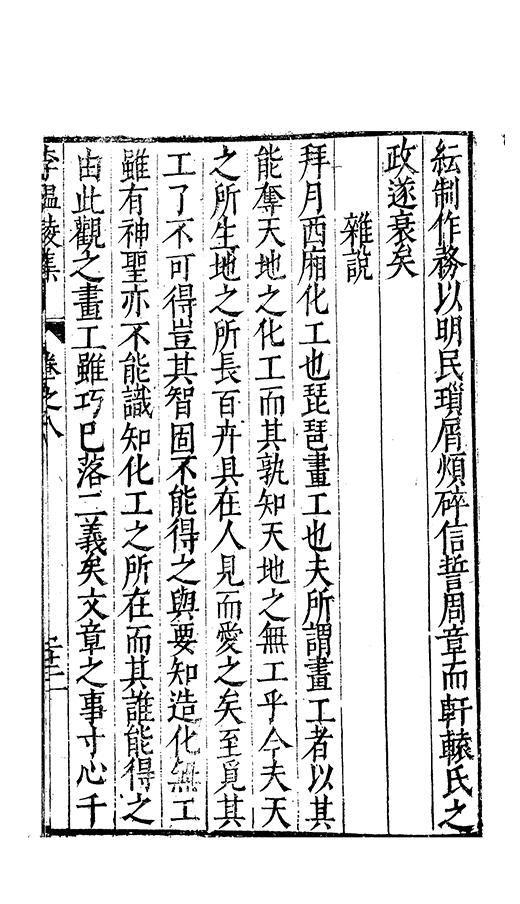 紜制作務以明民瑣屑煩碎信誓周章而軒轅氏之
政遂衰矣
雜說
拜月西廂化工也琵琶畫工也夫所謂畫工者以其
能奪天地之化工而其孰知天地之無工乎今夫天
之所生地之所長百卉具在人見而愛之矣至覓其
工了不可得豈其智固不能得之與要知造化無工
雖有神聖亦不能識知化工之所在而其誰能得之
由此觀之畫工雖巧已落二義矣文章之事寸心千
李溫陵集 卷之八